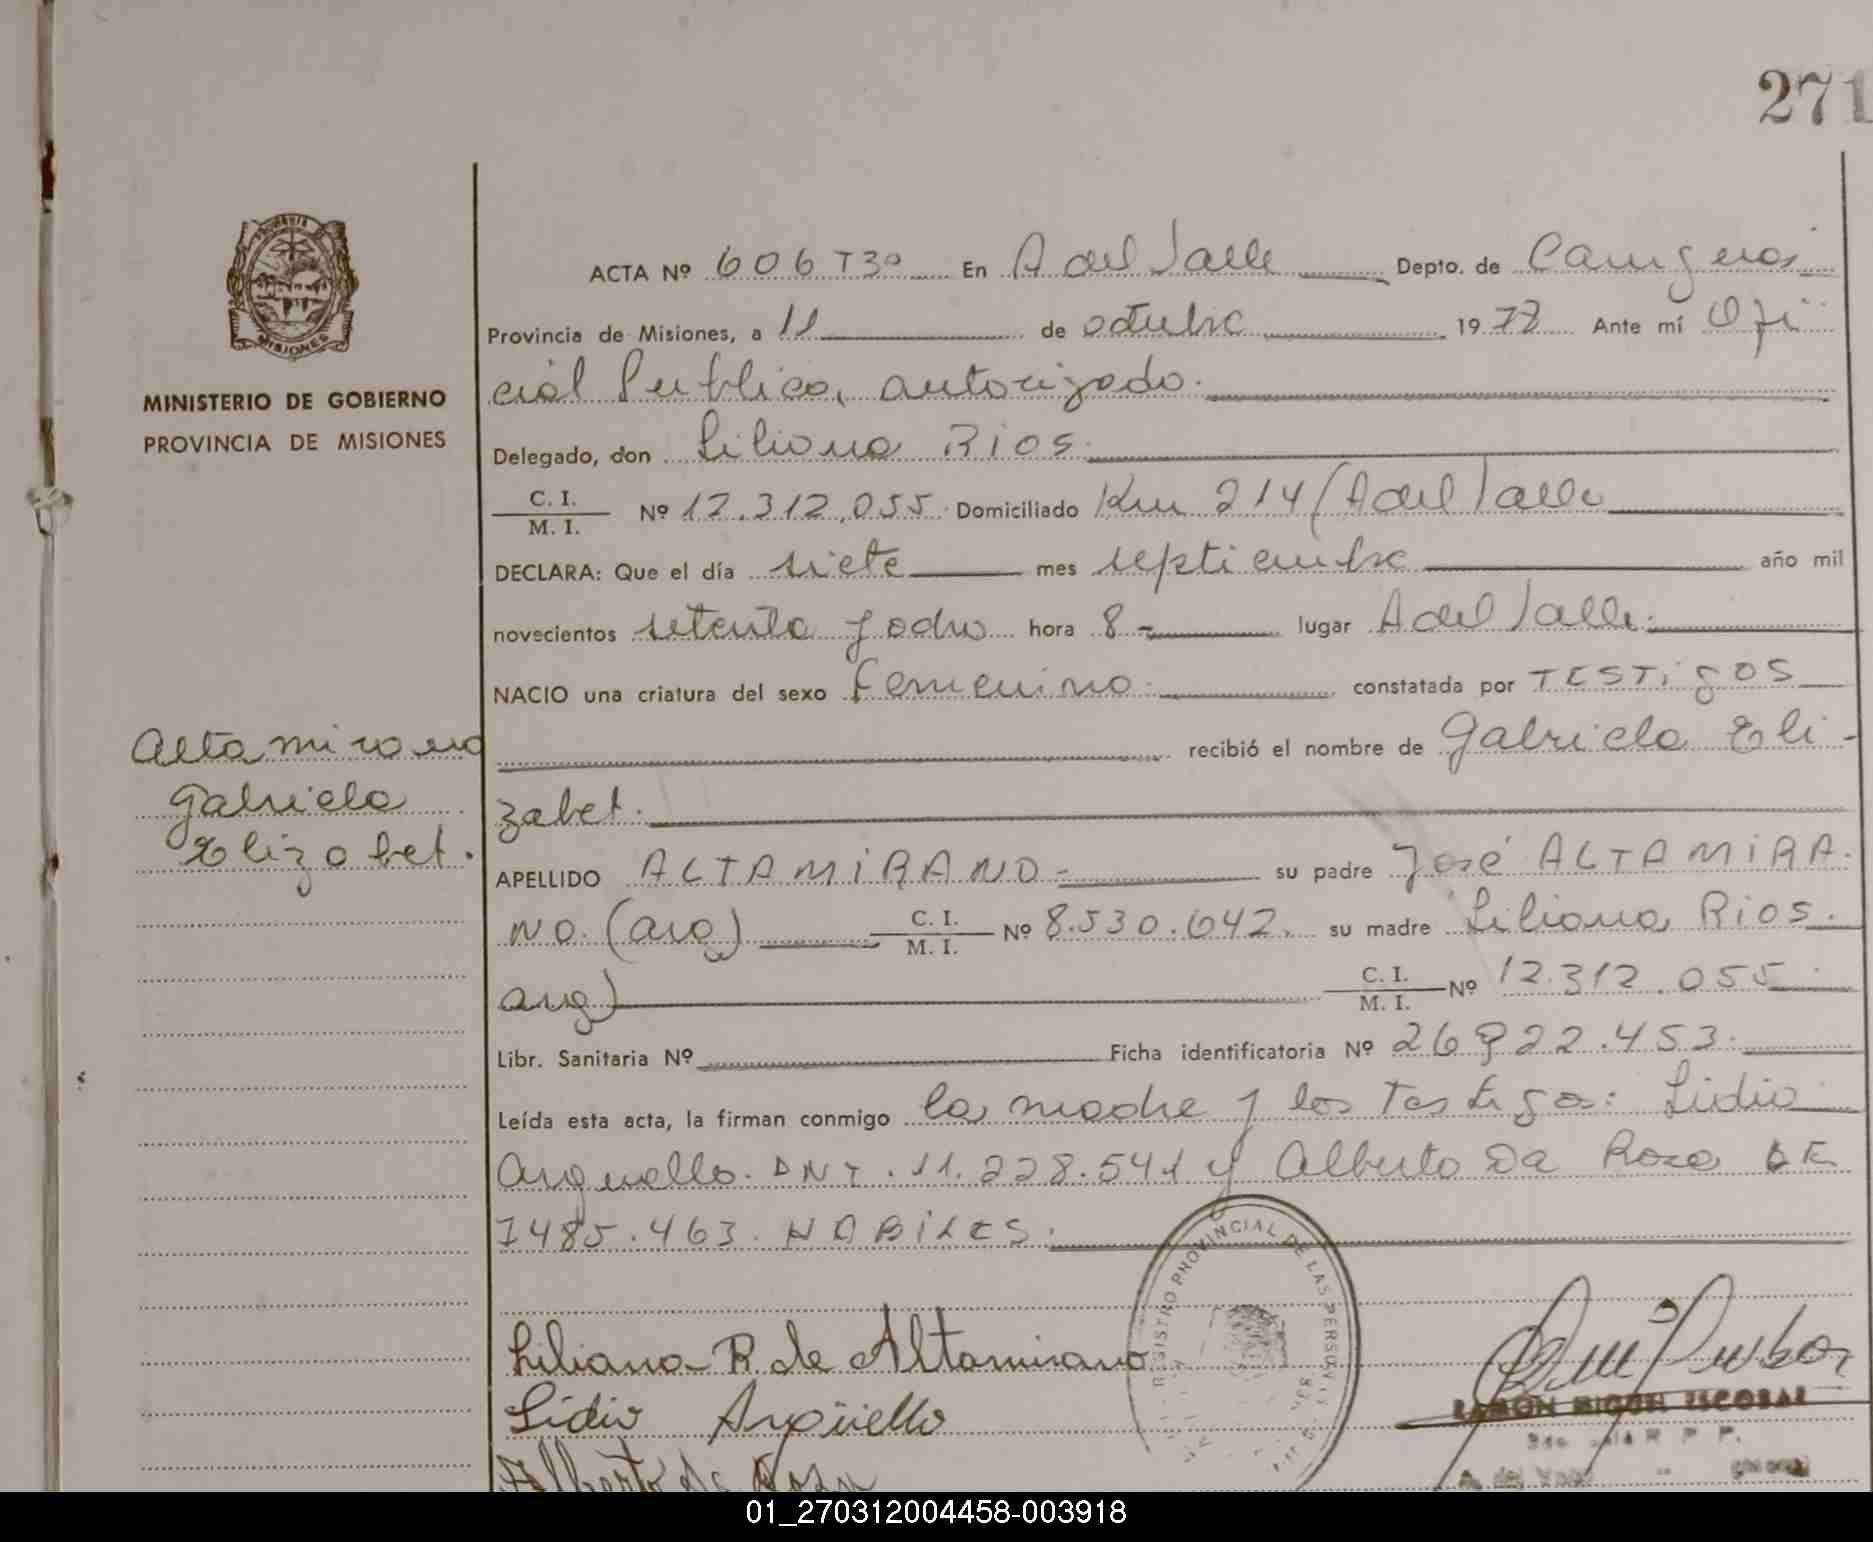 271
ACTA Nº 606 Tº 3º En A del Valle Depto. de Cainguás
Provincia de Misiones, a 11 de octubre 1978 Ante mí Ofi
cial Publico, autorizado.
MINISTERIO DE GOBIERNO
PROVINCIA DE MISIONES
Delegado, don Liliana Rios.
C. I.
M. I. Nº 12.312.055 Domiciliado Km 214 (A del Valle
DECLARA: Que el día siete mes septiembre año mil
novecientos setenta y ocho hora 8 - lugar A del Valle.
NACIO una criatura del sexo femenino. constatada por TESTigos
recibió el nombre de Gabriela Eli -
zabet.
Altamirano
Gabriela
Elizabet.
APELLIDO ALTAMIRANO - su padre José ALTAMIRA
NO. (arg) C. I.
M. I. Nº 8.530.642. su madre Liliana Rios.
arg) C. I.
M. I. Nº 12.312.055
Libr. Sanitaria Nº Ficha identificatoria Nº 26.922.453.
Leída esta acta, la firman conmigo la madre y los Testigos: Lidio
Arguello. DNI. 11.228.541 y Alberto Da Rosa LE
7485.463. HABILES.
REGISTRO PROVINCIAL DE LAS PERSONAS
Liliana R. de Altamirano
Lidio Argüello
Alberto da Rosa
RAMON MIGUEL ESCOBAR
R P P.
01_270312004458-003918